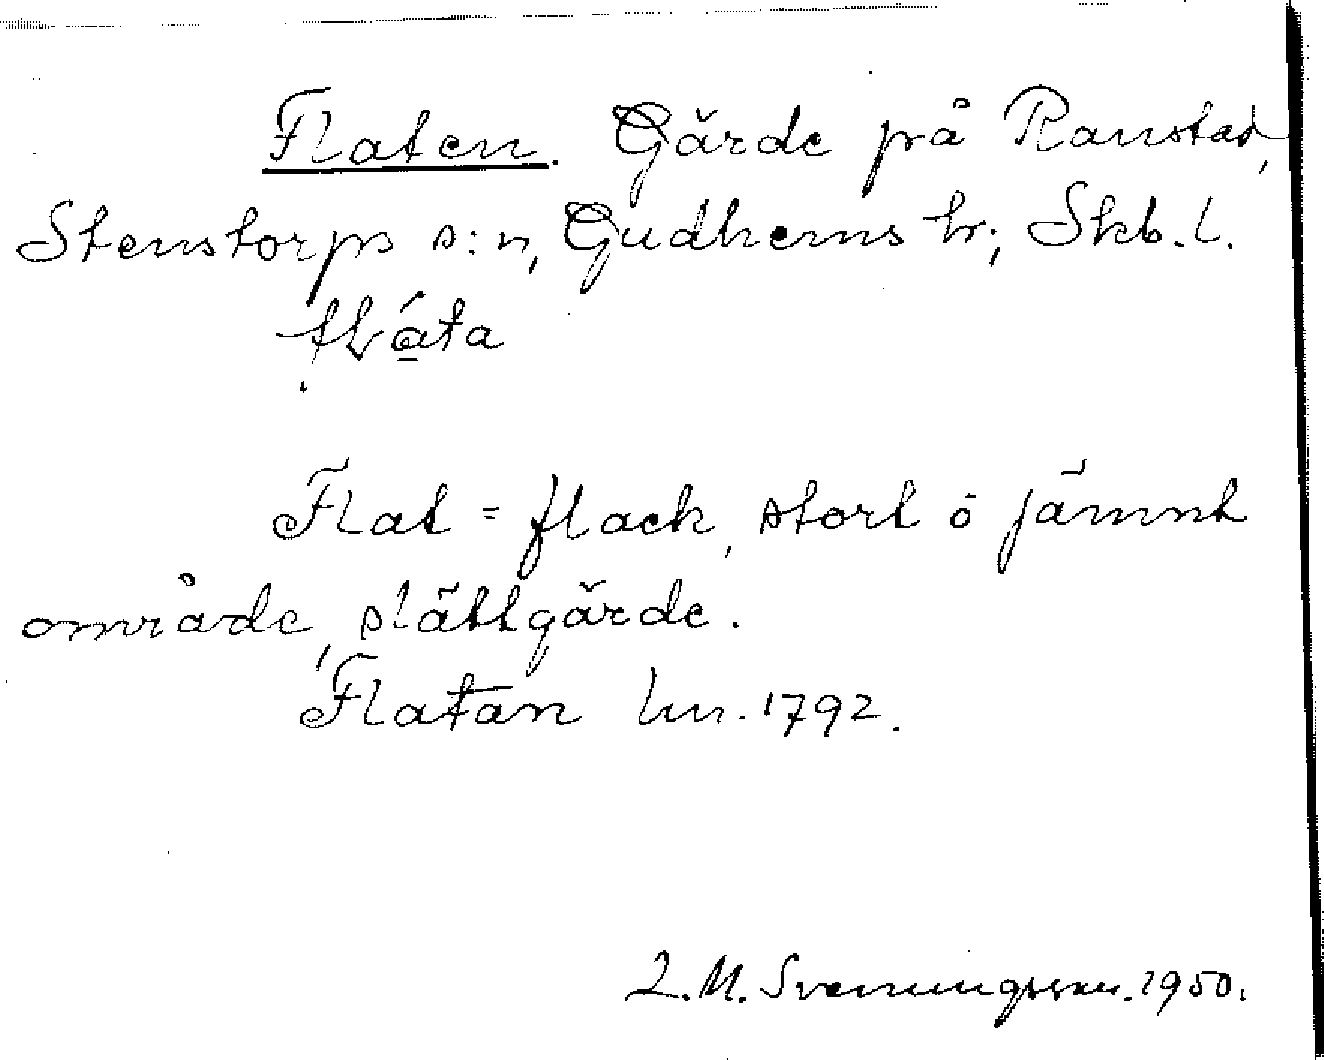 Flaten. Gärde på Ranstad,
Stenstorps s:n, Gudhems hr; Skb. l.
Flat = flack, stort ö jämnt
område, slättgärde.
Flatan lm. 1792.
L. M. Svenungsson. 1950.